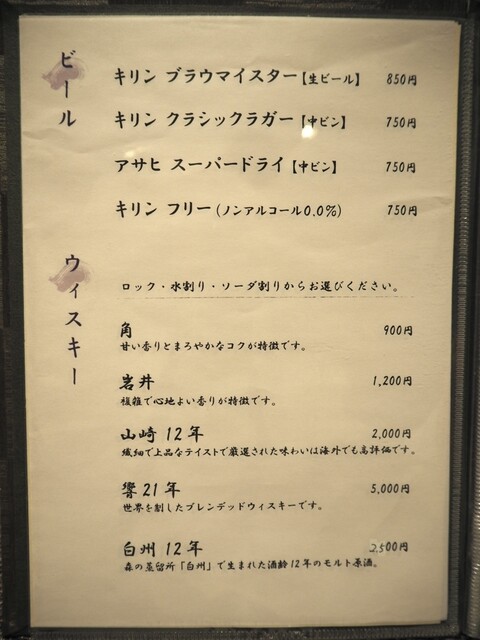 ビール
キリン ブラウマイスター【生ビール】 850円
キリン クラシックラガー【中ビン】 750円
アサヒ スーパードライ【中ビン】 750円
キリン フリー(ノンアルコール0.0%) 750円
ウィスキー
ロック・水割り・ソーダ割りからお選びください。
角 900円
甘い香りとまろやかなコクが特徴です。
岩井 1,200円
複雑で心地よい香りが特徴です。
山崎 12年 2,000円
繊細で上品なテイストで厳選された味わいは海外でも高評価です。
響21年 5,000円
世界を制したブレンデッドウィスキーです。
白州 12年 2,500円
森の蒸留所「白州」で生まれた酒齢12年のモルト原酒。